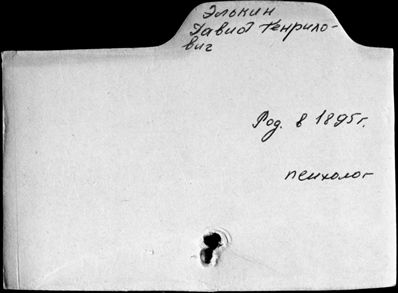 Элькин
Давид Генрихо-
вич
Род. в 1895г.
психолог